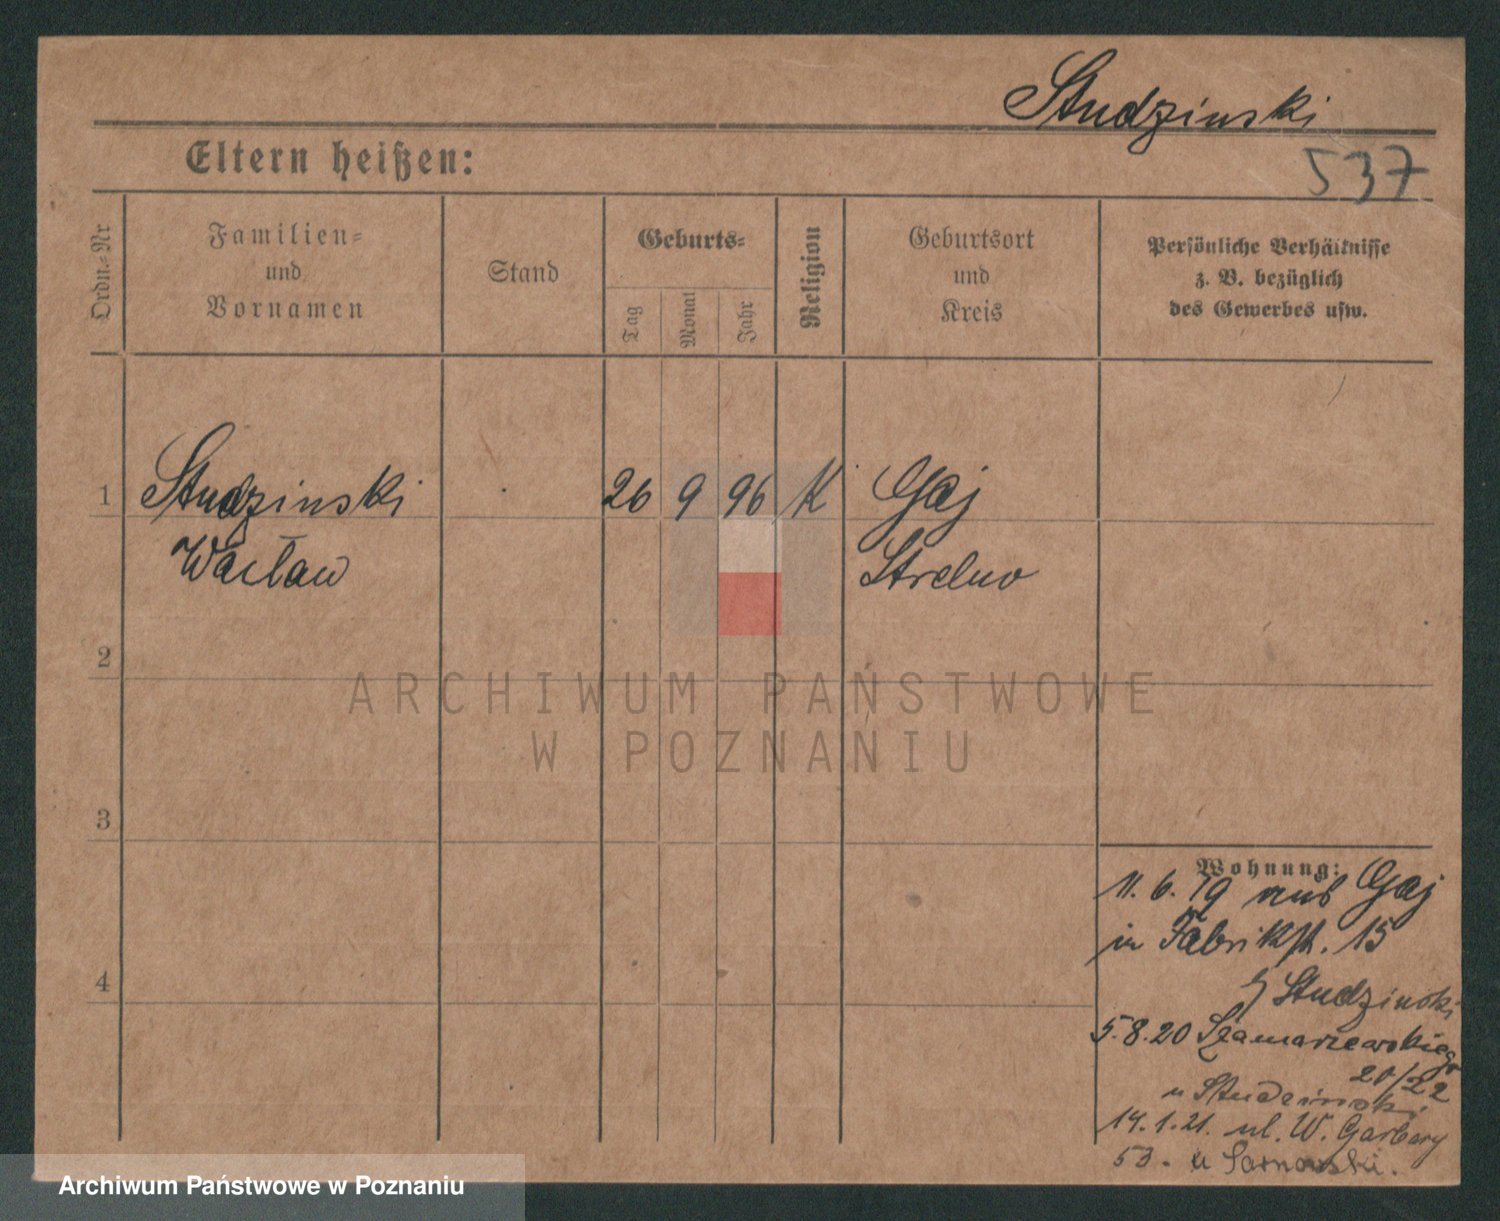 Studzinski
Eltern heißen:
537
Ordn.-Nr
Familien-
und
Vornamen
Stand
Geburts-
Tag
Monat
Jahr
Religion
Geburtsort
und
Kreis
Persönliche Verhältnisse
z. B. bezüglich
des Gewerbes usw.
1 Studzinski 26 9 96 K Gaj
Wacław Strelno
2
3
4
Wohnung:
11.6.19 Gaj
in Fabrikst. 15
Studzinski
5.8.20 Szamarzewskiego
20/22
u Studzinski
14.1.21. ul. W. Garbary
53. u Sarnowski.
ARCHIWUM PAŃSTWOWE
W POZNANIU
Archiwum Państwowe w Poznaniu